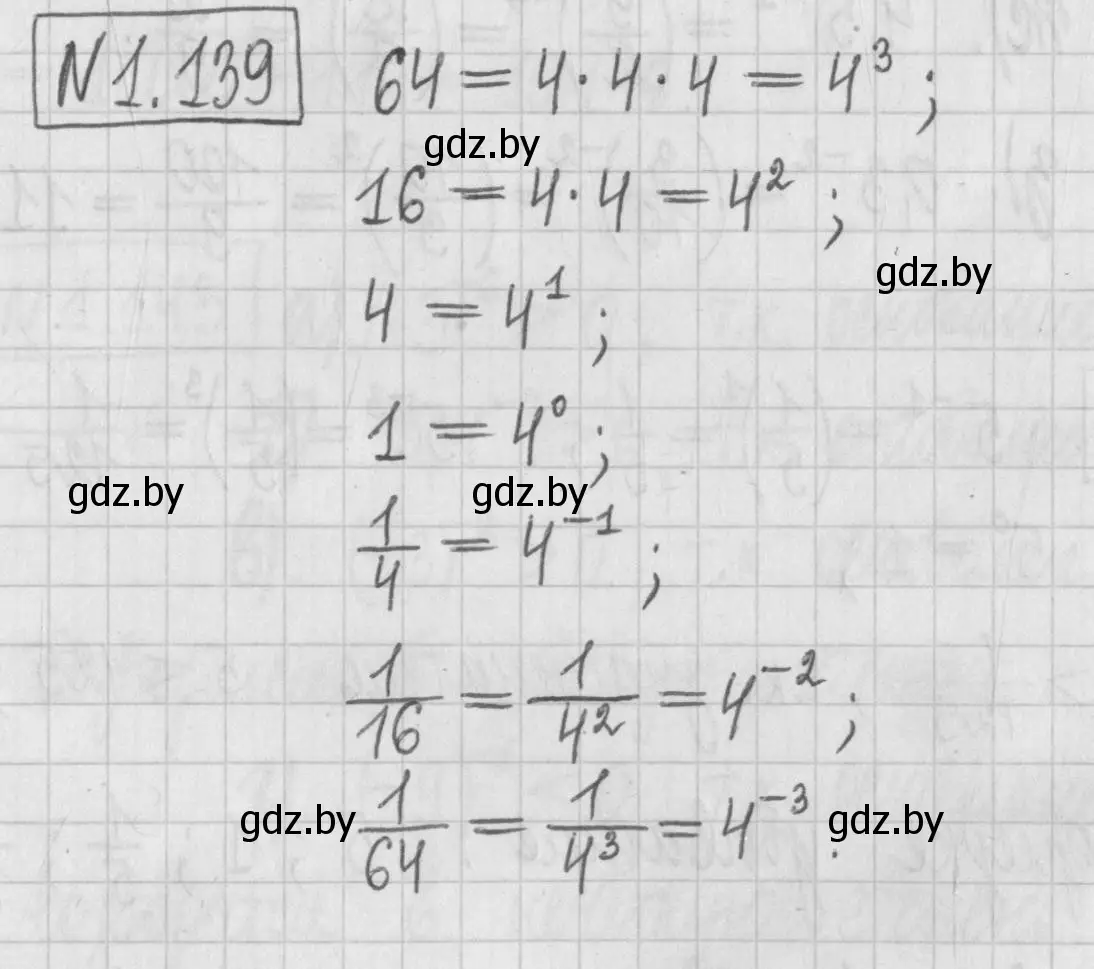 N1.139 64 = 4·4·4 = 4³;
gdz.by
16 = 4·4 = 4²;
gdz.by
4 = 4¹;
1 = 4⁰;
gdz.by gdz.by
1/4 = 4⁻¹;
1/16 = 1/4² = 4⁻²;
gdz.by 1/64 = 1/4³ = 4⁻³. gdz.by